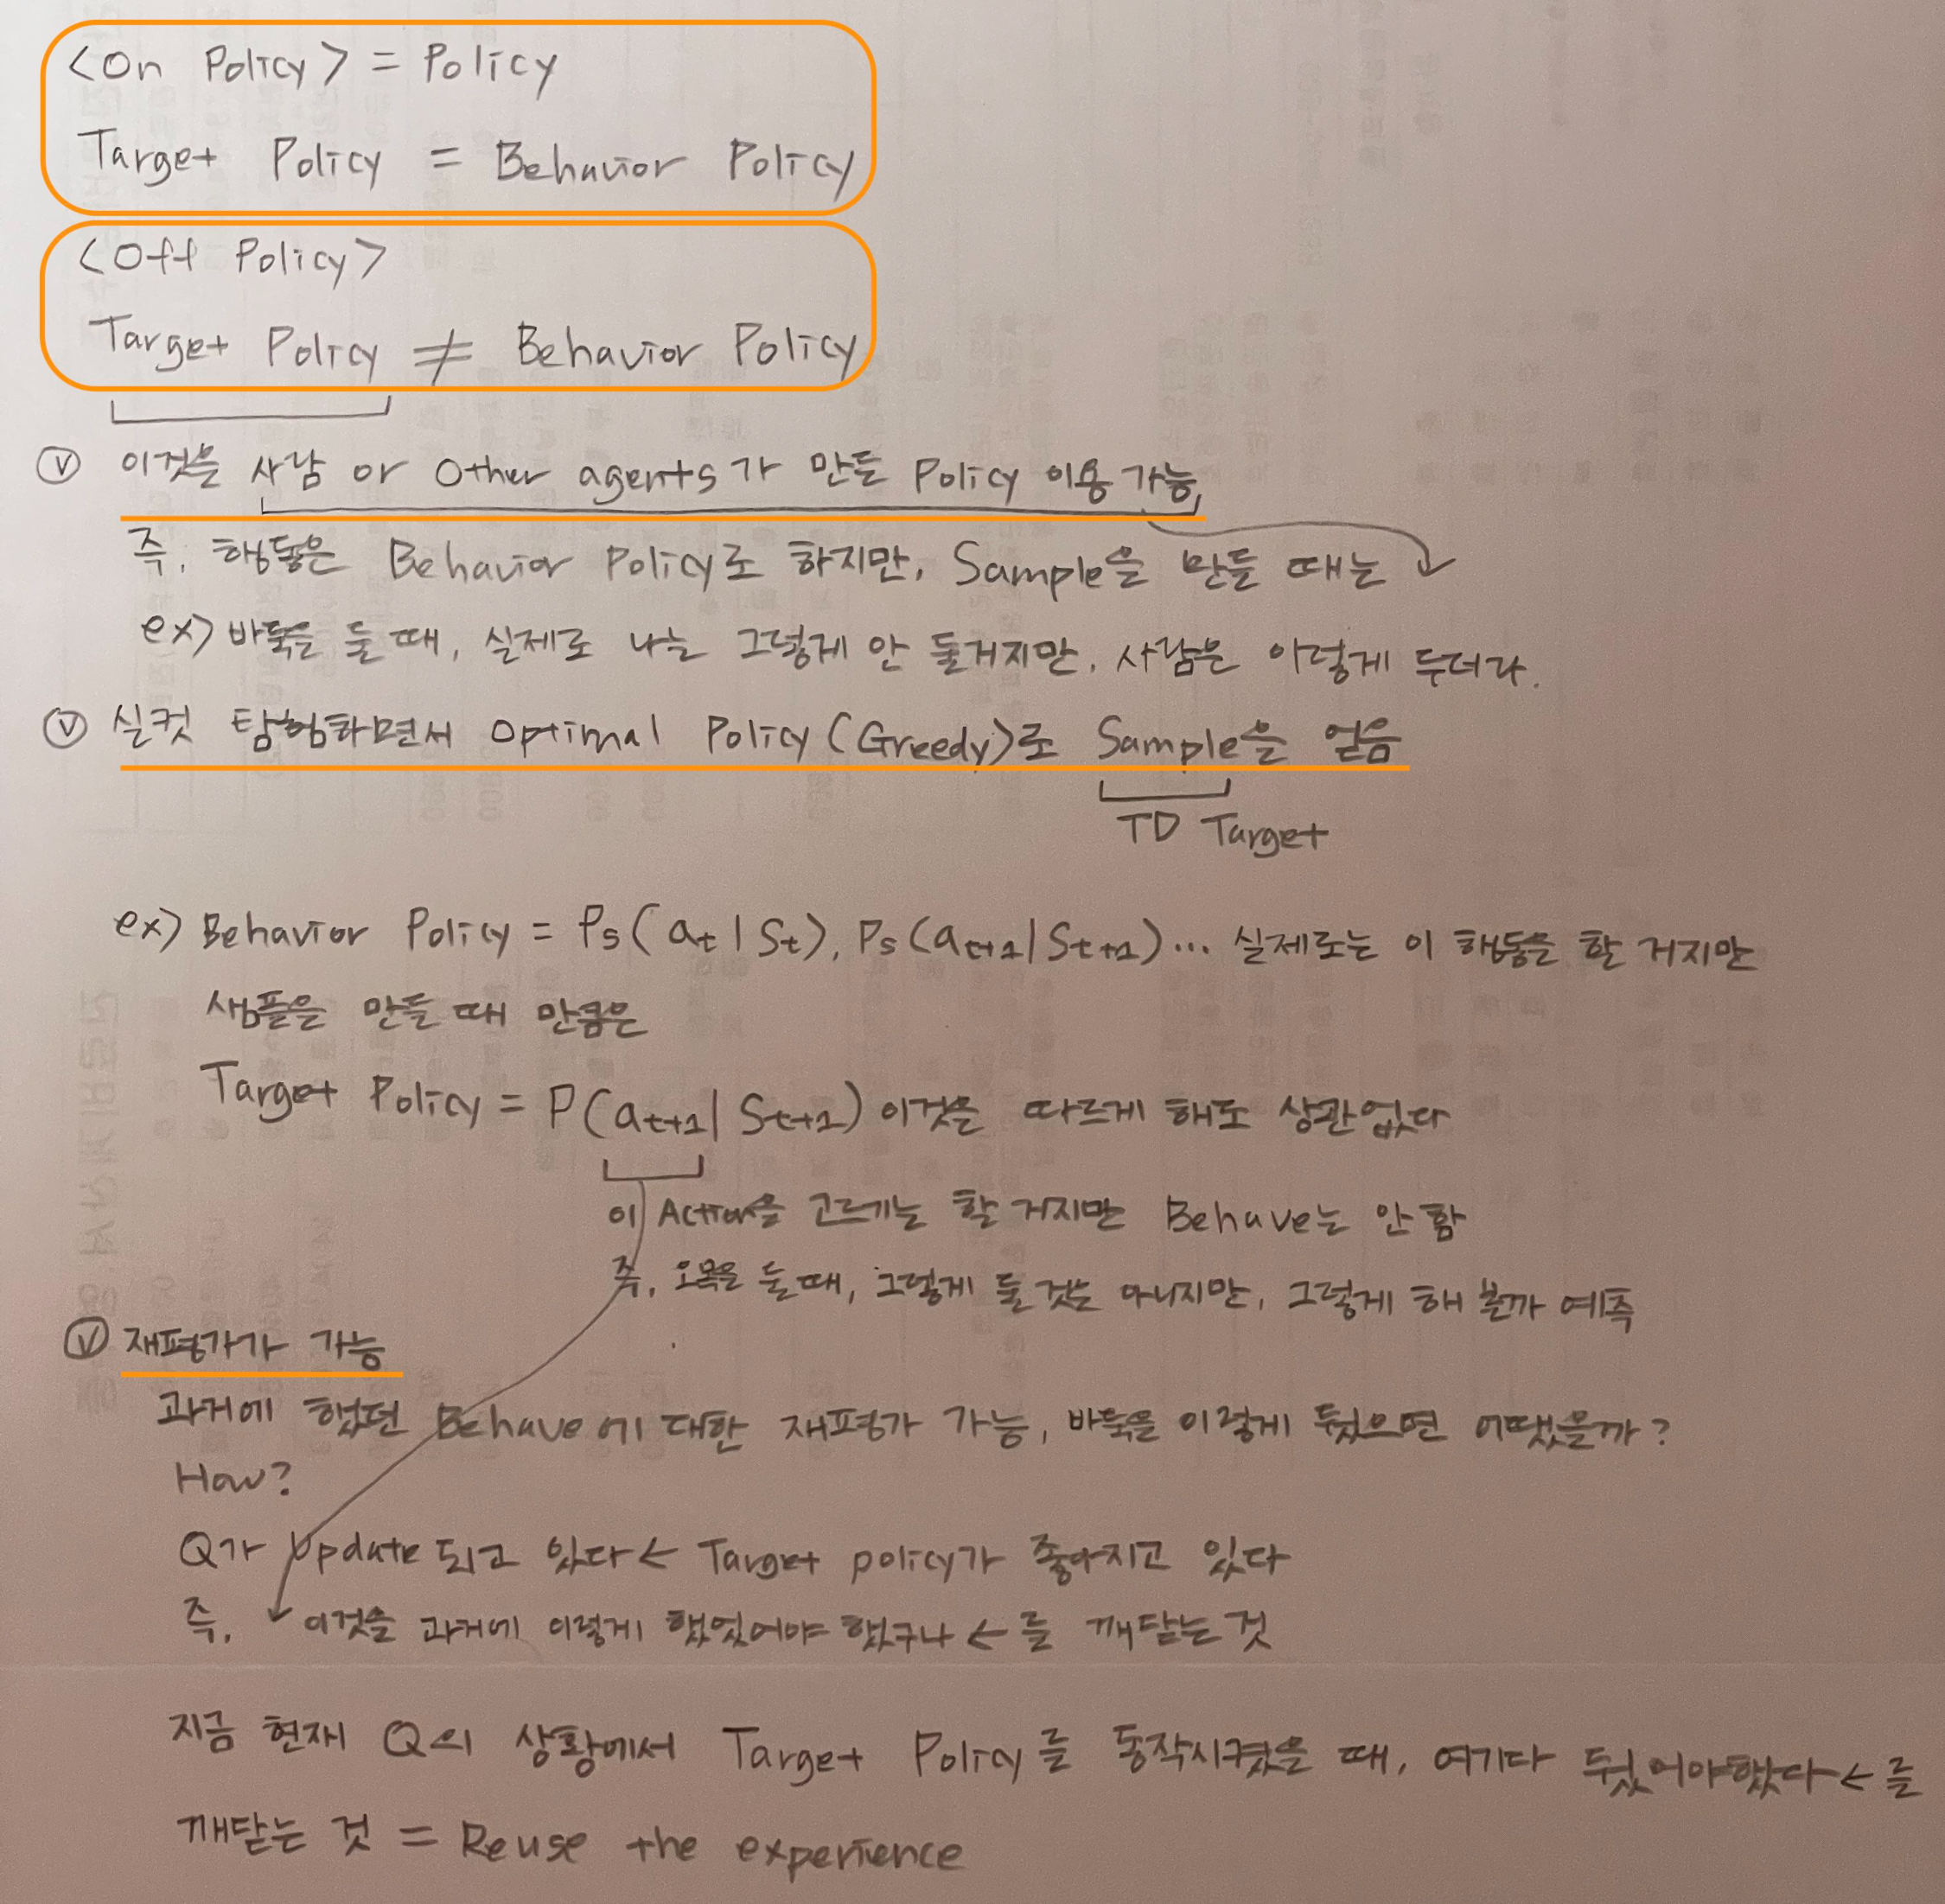 <On Policy> = Policy
Target Policy = Behavior Policy
<Off Policy>
Target Policy ≠ Behavior Policy
ⓥ 이것은 사람 or Other agents가 만든 Policy 이용 가능,
즉, 행동은 Behavior Policy로 하지만, Sample을 만들 때는
ex) 바둑을 둘 때, 실제로 나는 그렇게 안 둘거지만, 사람은 이렇게 두더라.
ⓥ 실컷 탐험하면서 Optimal Policy(Greedy)로 Sample을 얻음
TD Target
ex) Behavior Policy = Ps(at|St), Ps(at+1|St+1)... 실제로는 이 행동을 할 거지만
샘플을 만들 때 만큼은
Target Policy = P(at+1|St+1) 이것은 따르게 해도 상관없다
이 Action을 고르기는 할 거지만 Behave는 안 함
즉, 오목을 둘 때, 그렇게 둘 것은 아니지만, 그렇게 해 볼까 예측
ⓥ 재평가가 가능
과거에 했던 Behave에 대한 재평가 가능, 바둑을 이렇게 뒀으면 어땠을까?
How?
Q가 Update 되고 있다 ← Target policy가 좋아지고 있다
즉, 이것을 과거에 이렇게 했었어야 했구나 ← 를 깨닫는 것
지금 현재 Q의 상황에서 Target Policy를 동작시켰을 때, 여기다 뒀어야했다 ← 를
깨닫는 것 = Reuse the experience